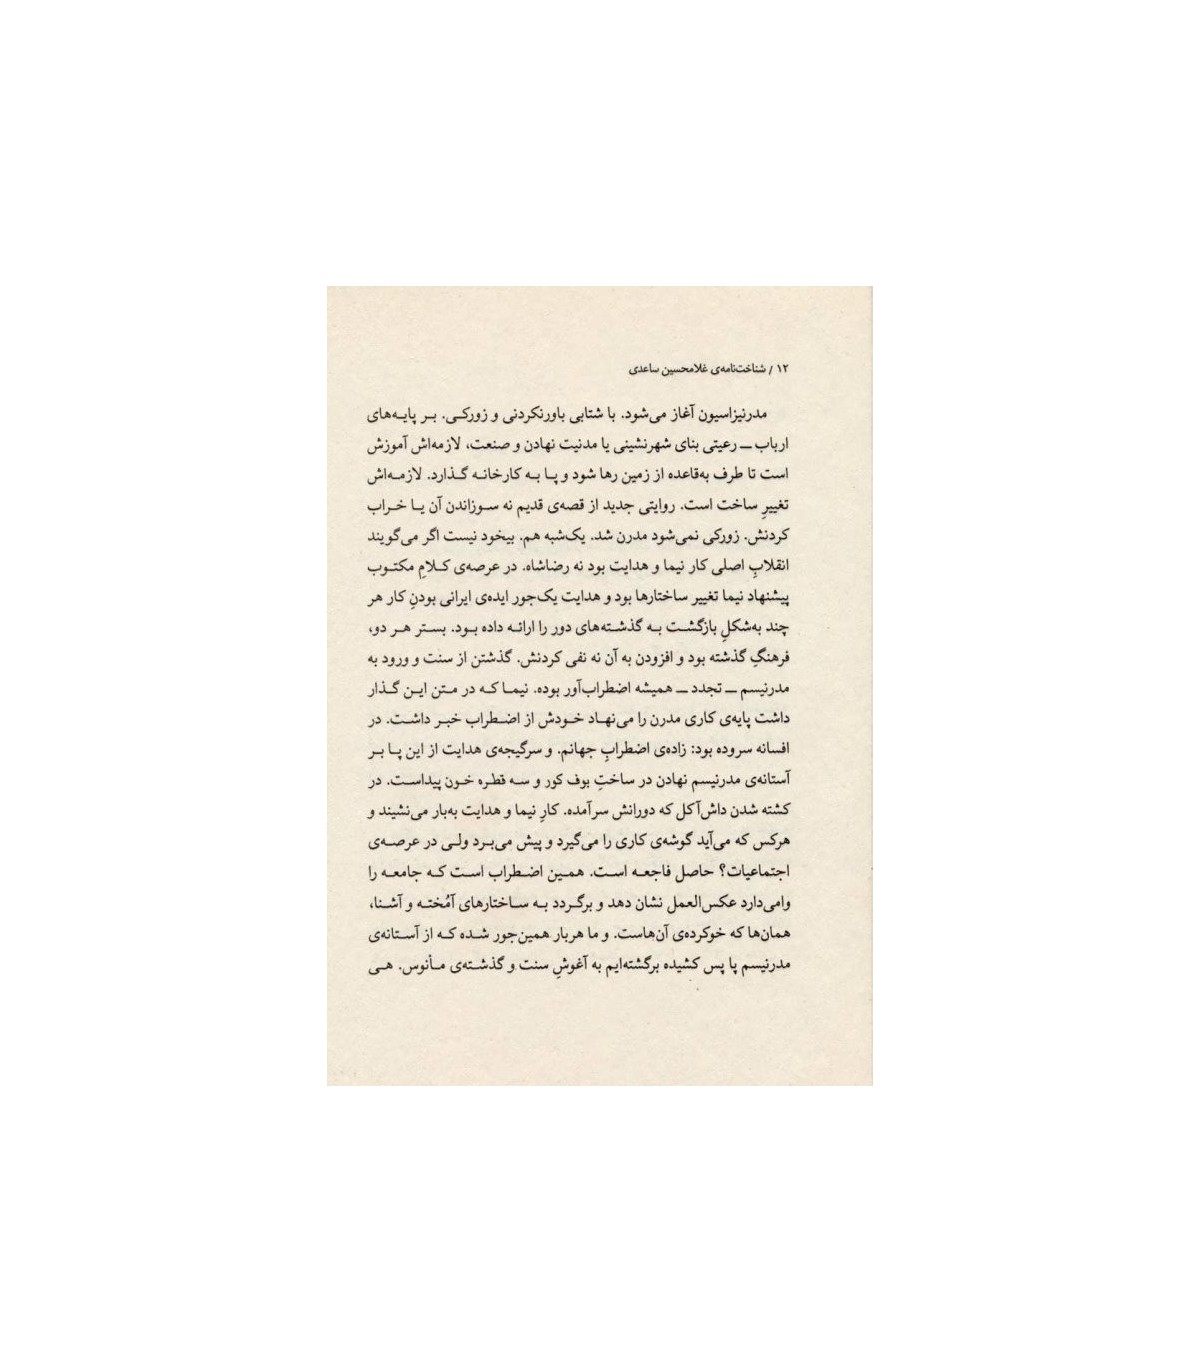 ۱۲ / شناخت‌نامه‌ی غلامحسین ساعدی
مدرنیزاسیون آغاز می‌شود. با شتابی باورنکردنی و زورکی. بر پایه‌های
ارباب ـ رعیتی بنای شهرنشینی یا مدنیت نهادن و صنعت، لازمه‌اش آموزش
است تا طرف به‌قاعده از زمین رها شود و پا به کارخانه گذارد. لازمه‌اش
تغییرِ ساخت است. روایتی جدید از قصه‌ی قدیم نه سوزاندن آن یا خراب
کردنش. زورکی نمی‌شود مدرن شد. یک‌شبه هم. بیخود نیست اگر می‌گویند
انقلابِ اصلی کار نیما و هدایت بود نه رضاشاه. در عرصه‌ی کلامِ مکتوب
پیشنهاد نیما تغییر ساختارها بود و هدایت یک‌جور ایده‌ی ایرانی بودنِ کار هر
چند به‌شکلِ بازگشت به گذشته‌های دور را ارائه داده بود. بستر هر دو،
فرهنگِ گذشته بود و افزودن به آن نه نفی کردنش. گذشتن از سنت و ورود به
مدرنیسم ـ تجدد ـ همیشه اضطراب‌آور بوده. نیما که در متن این گذار
داشت پایه‌ی کاری مدرن را می‌نهاد خودش از اضطراب خبر داشت. در
افسانه سروده بود: زاده‌ی اضطرابِ جهانم. و سرگیجه‌ی هدایت از این پا بر
آستانه‌ی مدرنیسم نهادن در ساختِ بوف کور و سه قطره خون پیداست. در
کشته شدن داش‌آکل که دورانش سرآمده. کارِ نیما و هدایت به‌بار می‌نشیند و
هرکس که می‌آید گوشه‌ی کاری را می‌گیرد و پیش می‌برد ولی در عرصه‌ی
اجتماعیات؟ حاصل فاجعه است. همین اضطراب است که جامعه را
وامی‌دارد عکس‌العمل نشان دهد و برگردد به ساختارهای آمُخته و آشنا،
همان‌ها که خوکرده‌ی آن‌هاست. و ما هربار همین‌جور شده که از آستانه‌ی
مدرنیسم پا پس کشیده برگشته‌ایم به آغوشِ سنت و گذشته‌ی مأنوس. هی